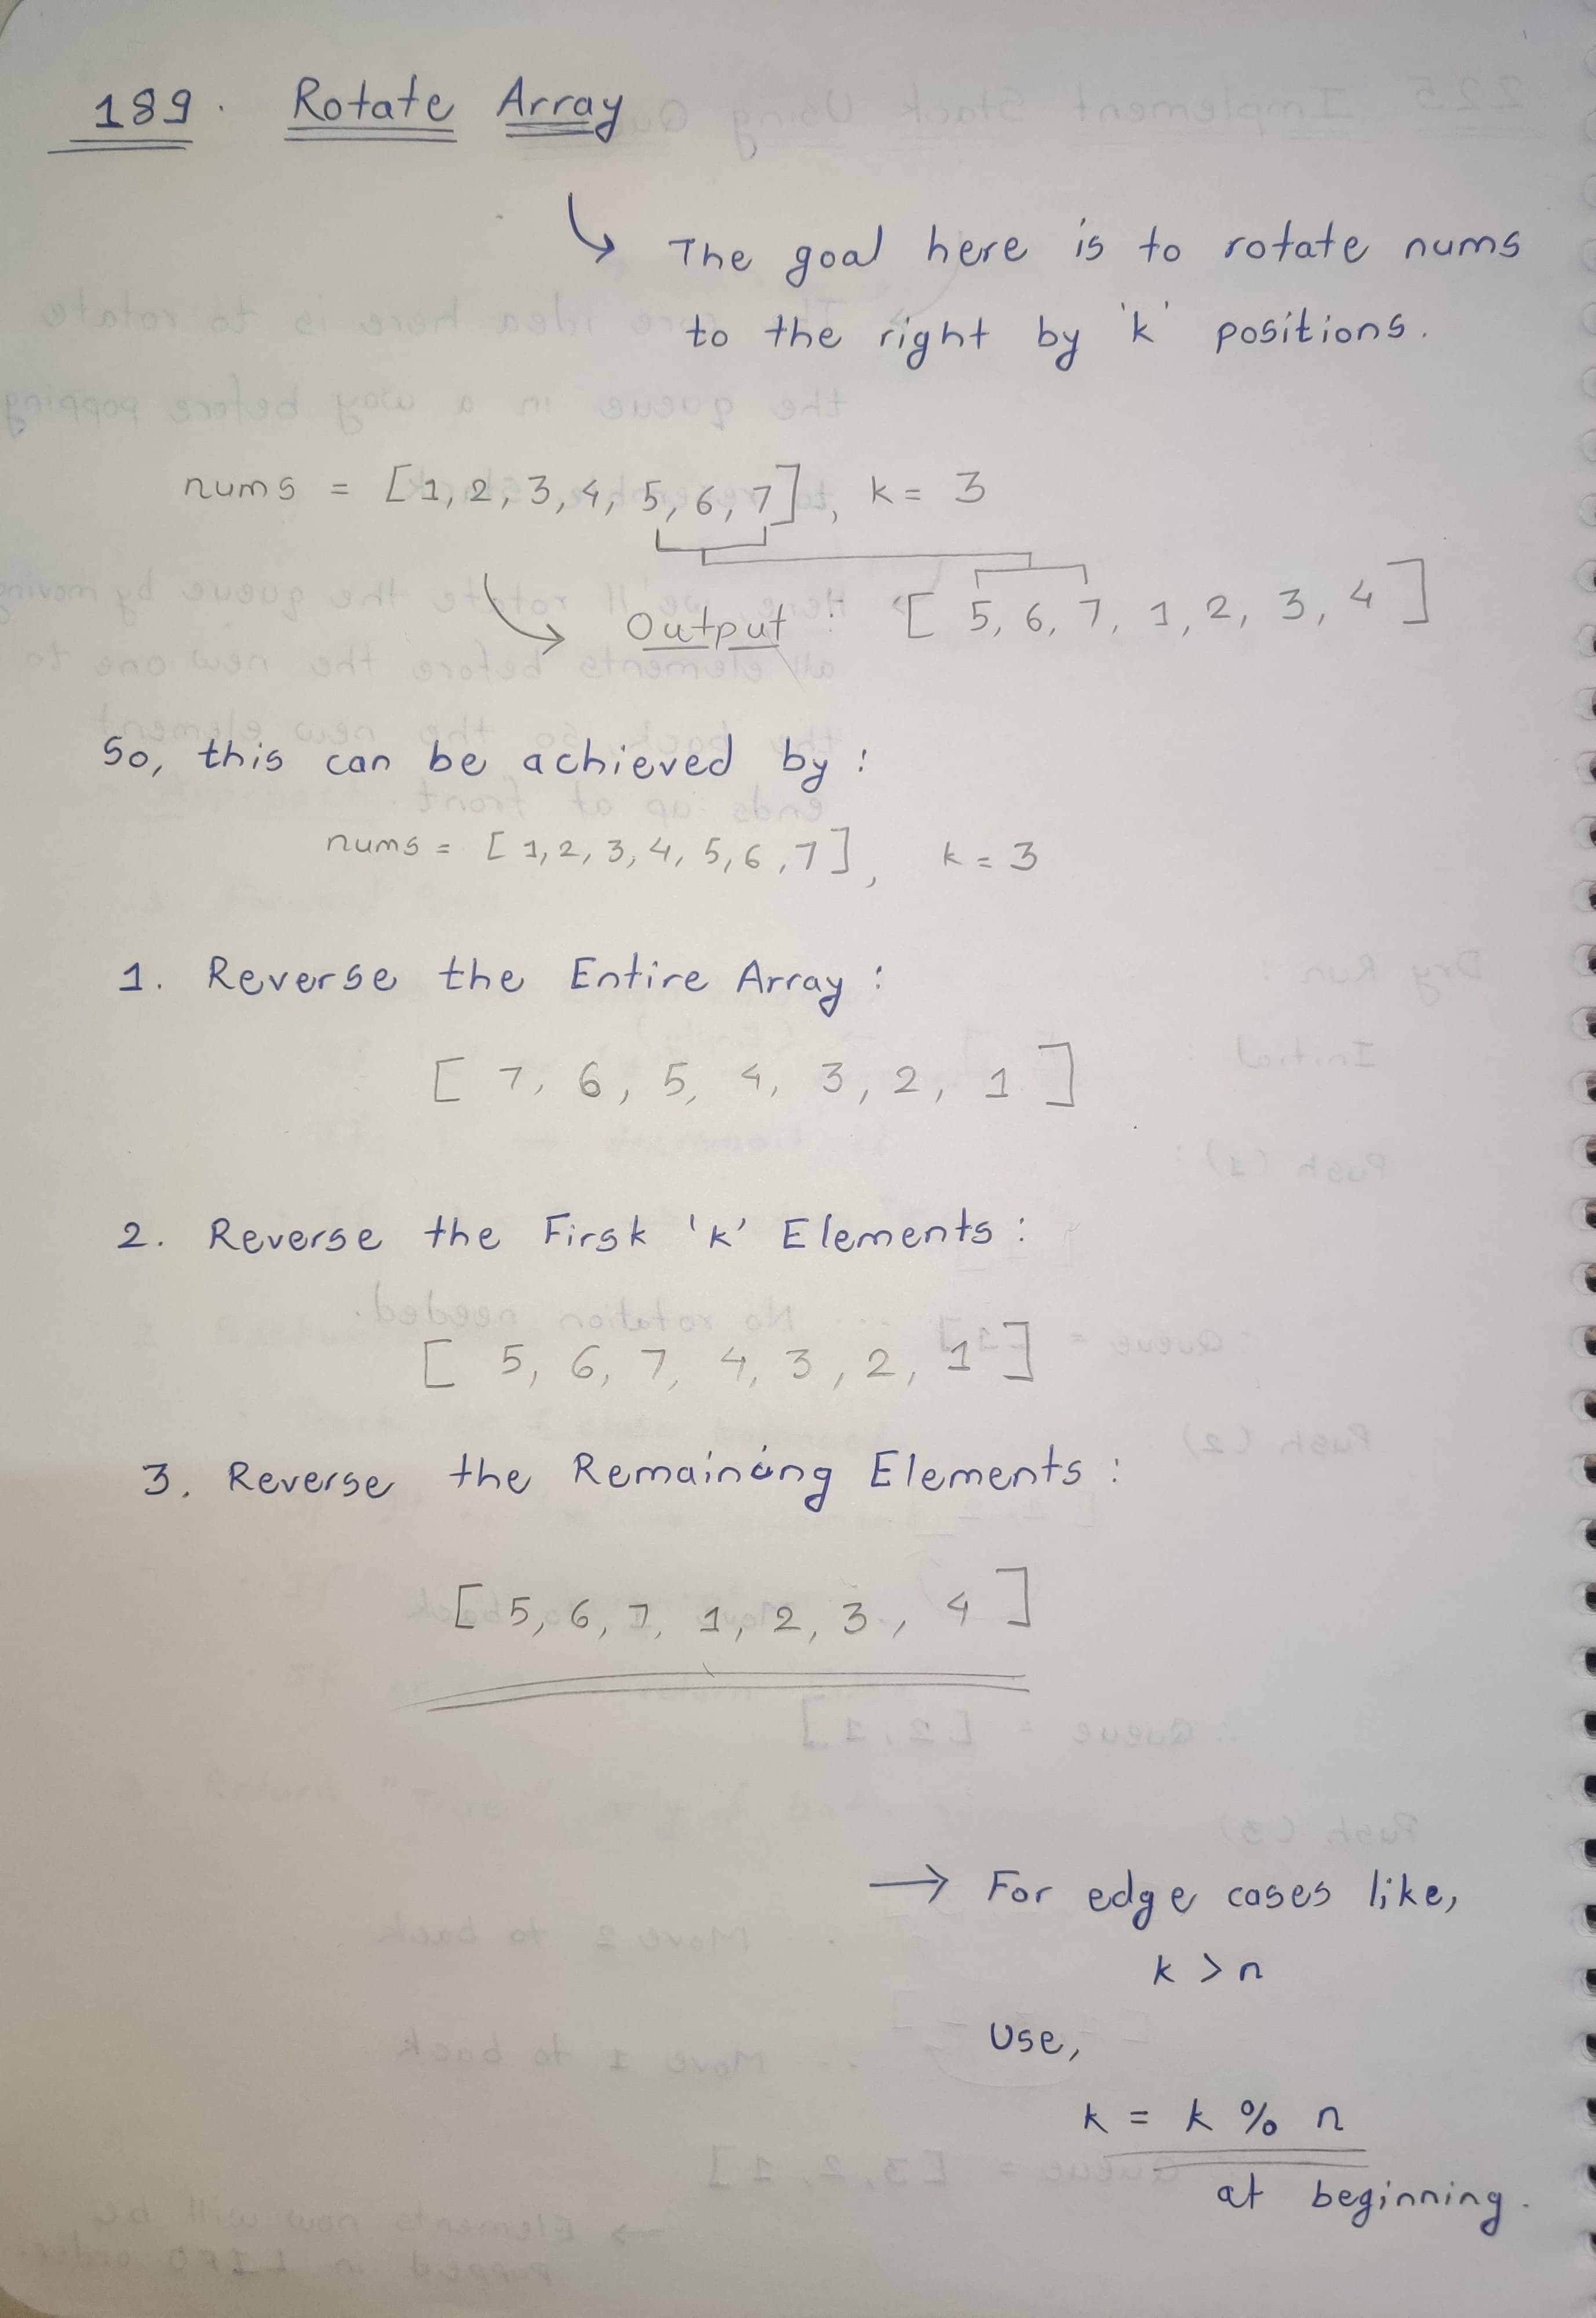 189. Rotate Array
The goal here is to rotate nums
to the right by 'k' positions.
nums = [1, 2, 3, 4, 5, 6, 7], k = 3
Output : [ 5, 6, 7, 1, 2, 3, 4 ]
So, this can be achieved by :
nums = [ 1, 2, 3, 4, 5, 6, 7 ], k = 3
1. Reverse the Entire Array :
[ 7, 6, 5, 4, 3, 2, 1 ]
2. Reverse the First 'k' Elements :
[ 5, 6, 7, 4, 3, 2, 1 ]
3. Reverse the Remaining Elements :
[ 5, 6, 7, 1, 2, 3, 4 ]
→ For edge cases like,
k > n
Use,
k = k % n
at beginning.